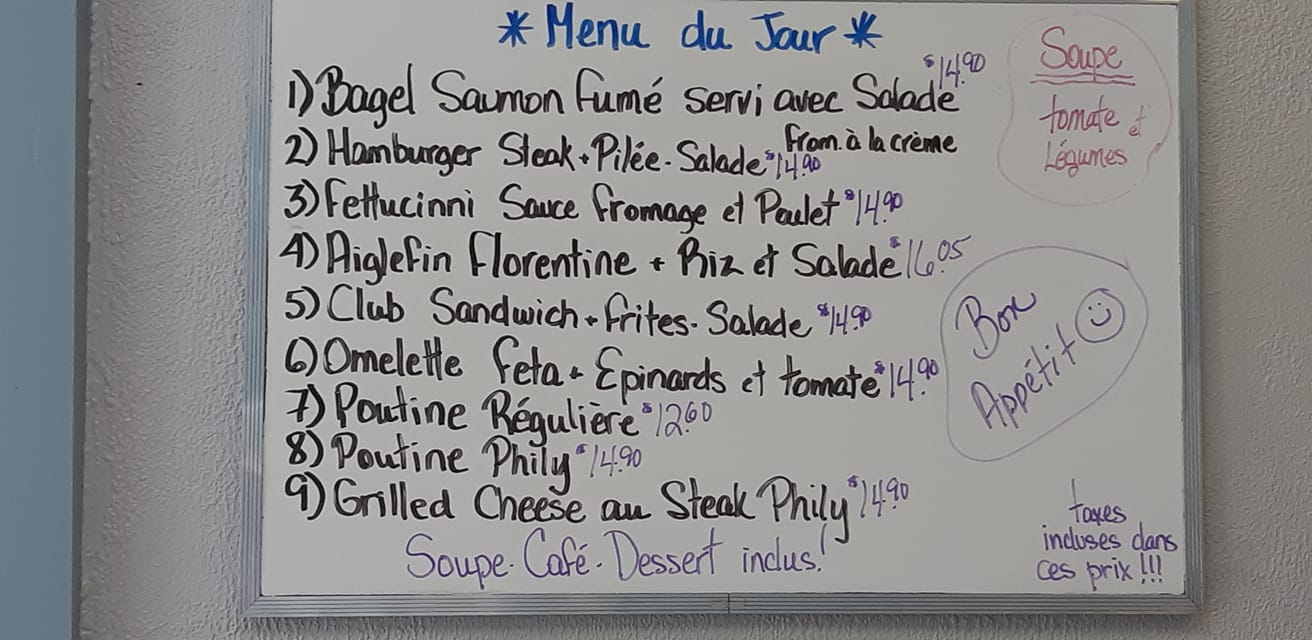 * Menu du Jour *
1) Bagel Saumon fumé servi avec Salade $14.90
From. à la crème
2) Hamburger Steak + Pilée - Salade $14.90
3) Fettucinni Sauce fromage et Poulet $14.90
4) Aiglefin Florentine + Riz et Salade $16.05
5) Club Sandwich + frites - Salade $14.90
6) Omelette feta + Epinards et tomate $14.90
7) Poutine Régulière $12.60
8) Poutine Phily $14.90
9) Grilled Cheese au Steak Phily $14.90
Soupe - Café - Dessert inclus!
Soupe
tomate et
Légumes
Bon
Appétit
taxes
incluses dans
ces prix!!!